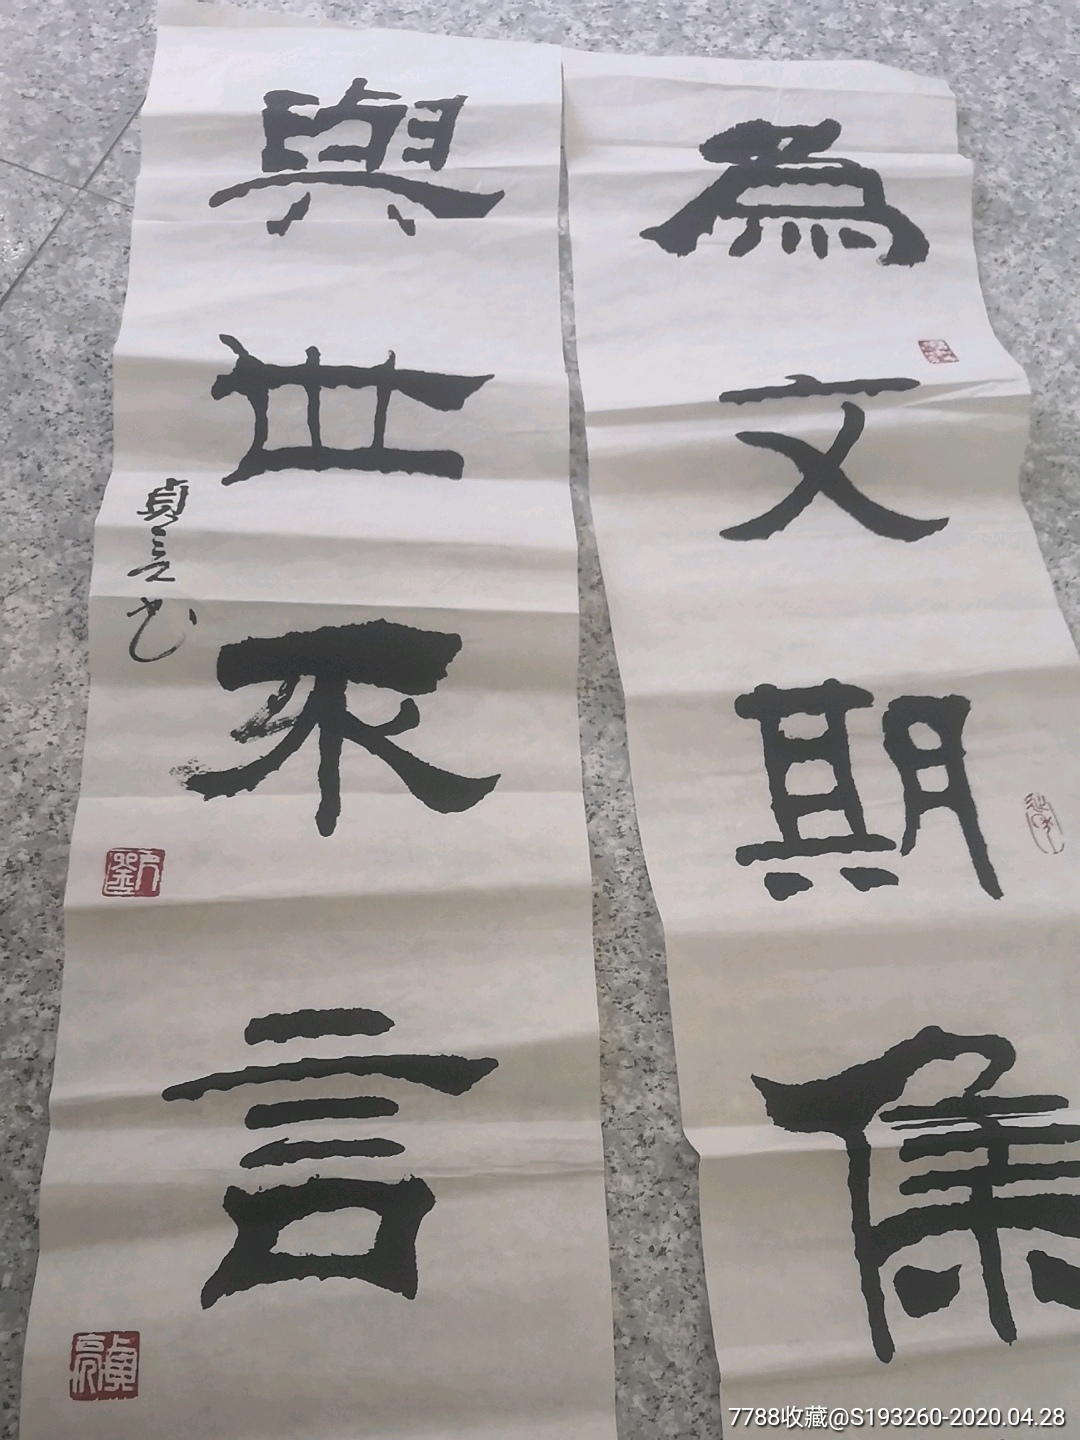 為文期集
與世不言
貞亮书
貞亮
7788收藏@S193260-2020.04.28